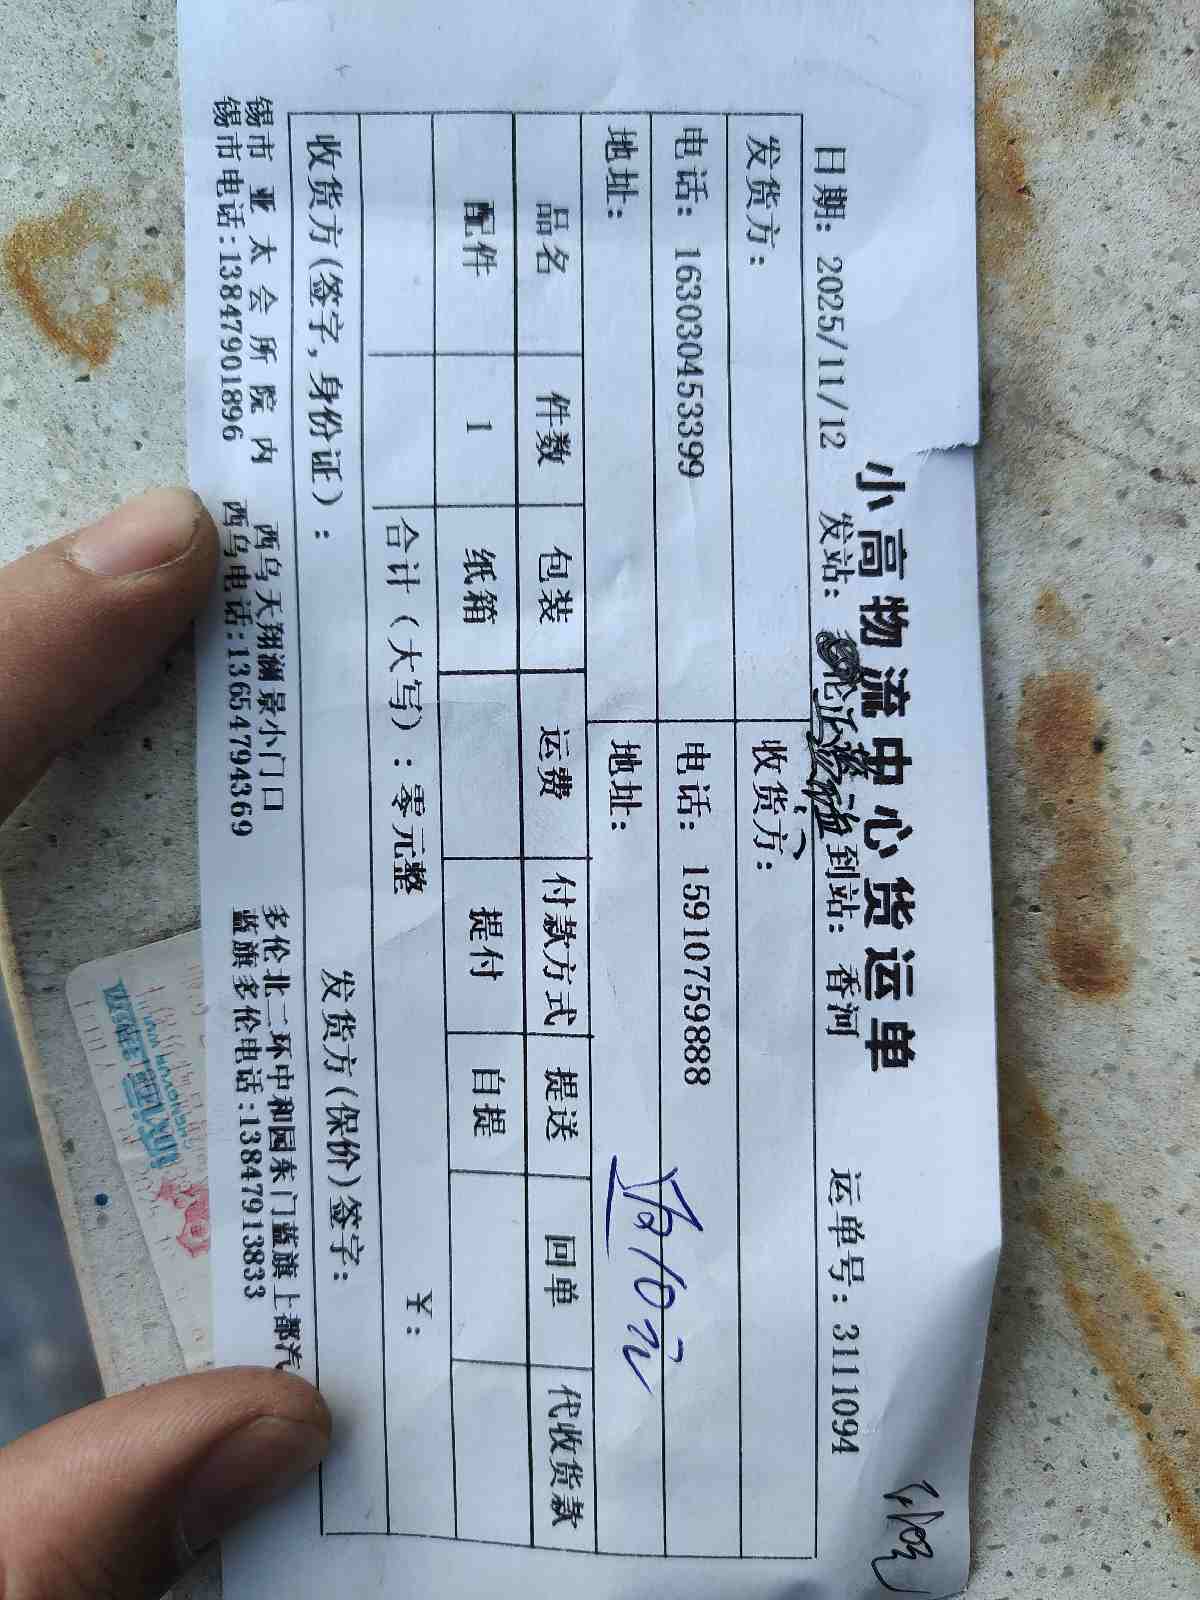 小高物流中心货运单
日期: 2025/11/12 发站: 到站: 香河 运单号: 3111094
发货方: 收货方:
电话: 16303045399 电话: 15910759888
地址: 地址:
品名 件数 包装 运费 付款方式 提送 回单 代收货款
配件 1 纸箱 提付 自提
合计(大写): 零元整 ¥:
收货方(签字,身份证): 发货方(保价)签字:
锡市亚太会所院内 西乌天翔澜景小门口 多伦北二环中和园东门蓝旗上都汽
锡市电话:13847901896 西乌电话:13654794369 蓝旗多伦电话:13847913833